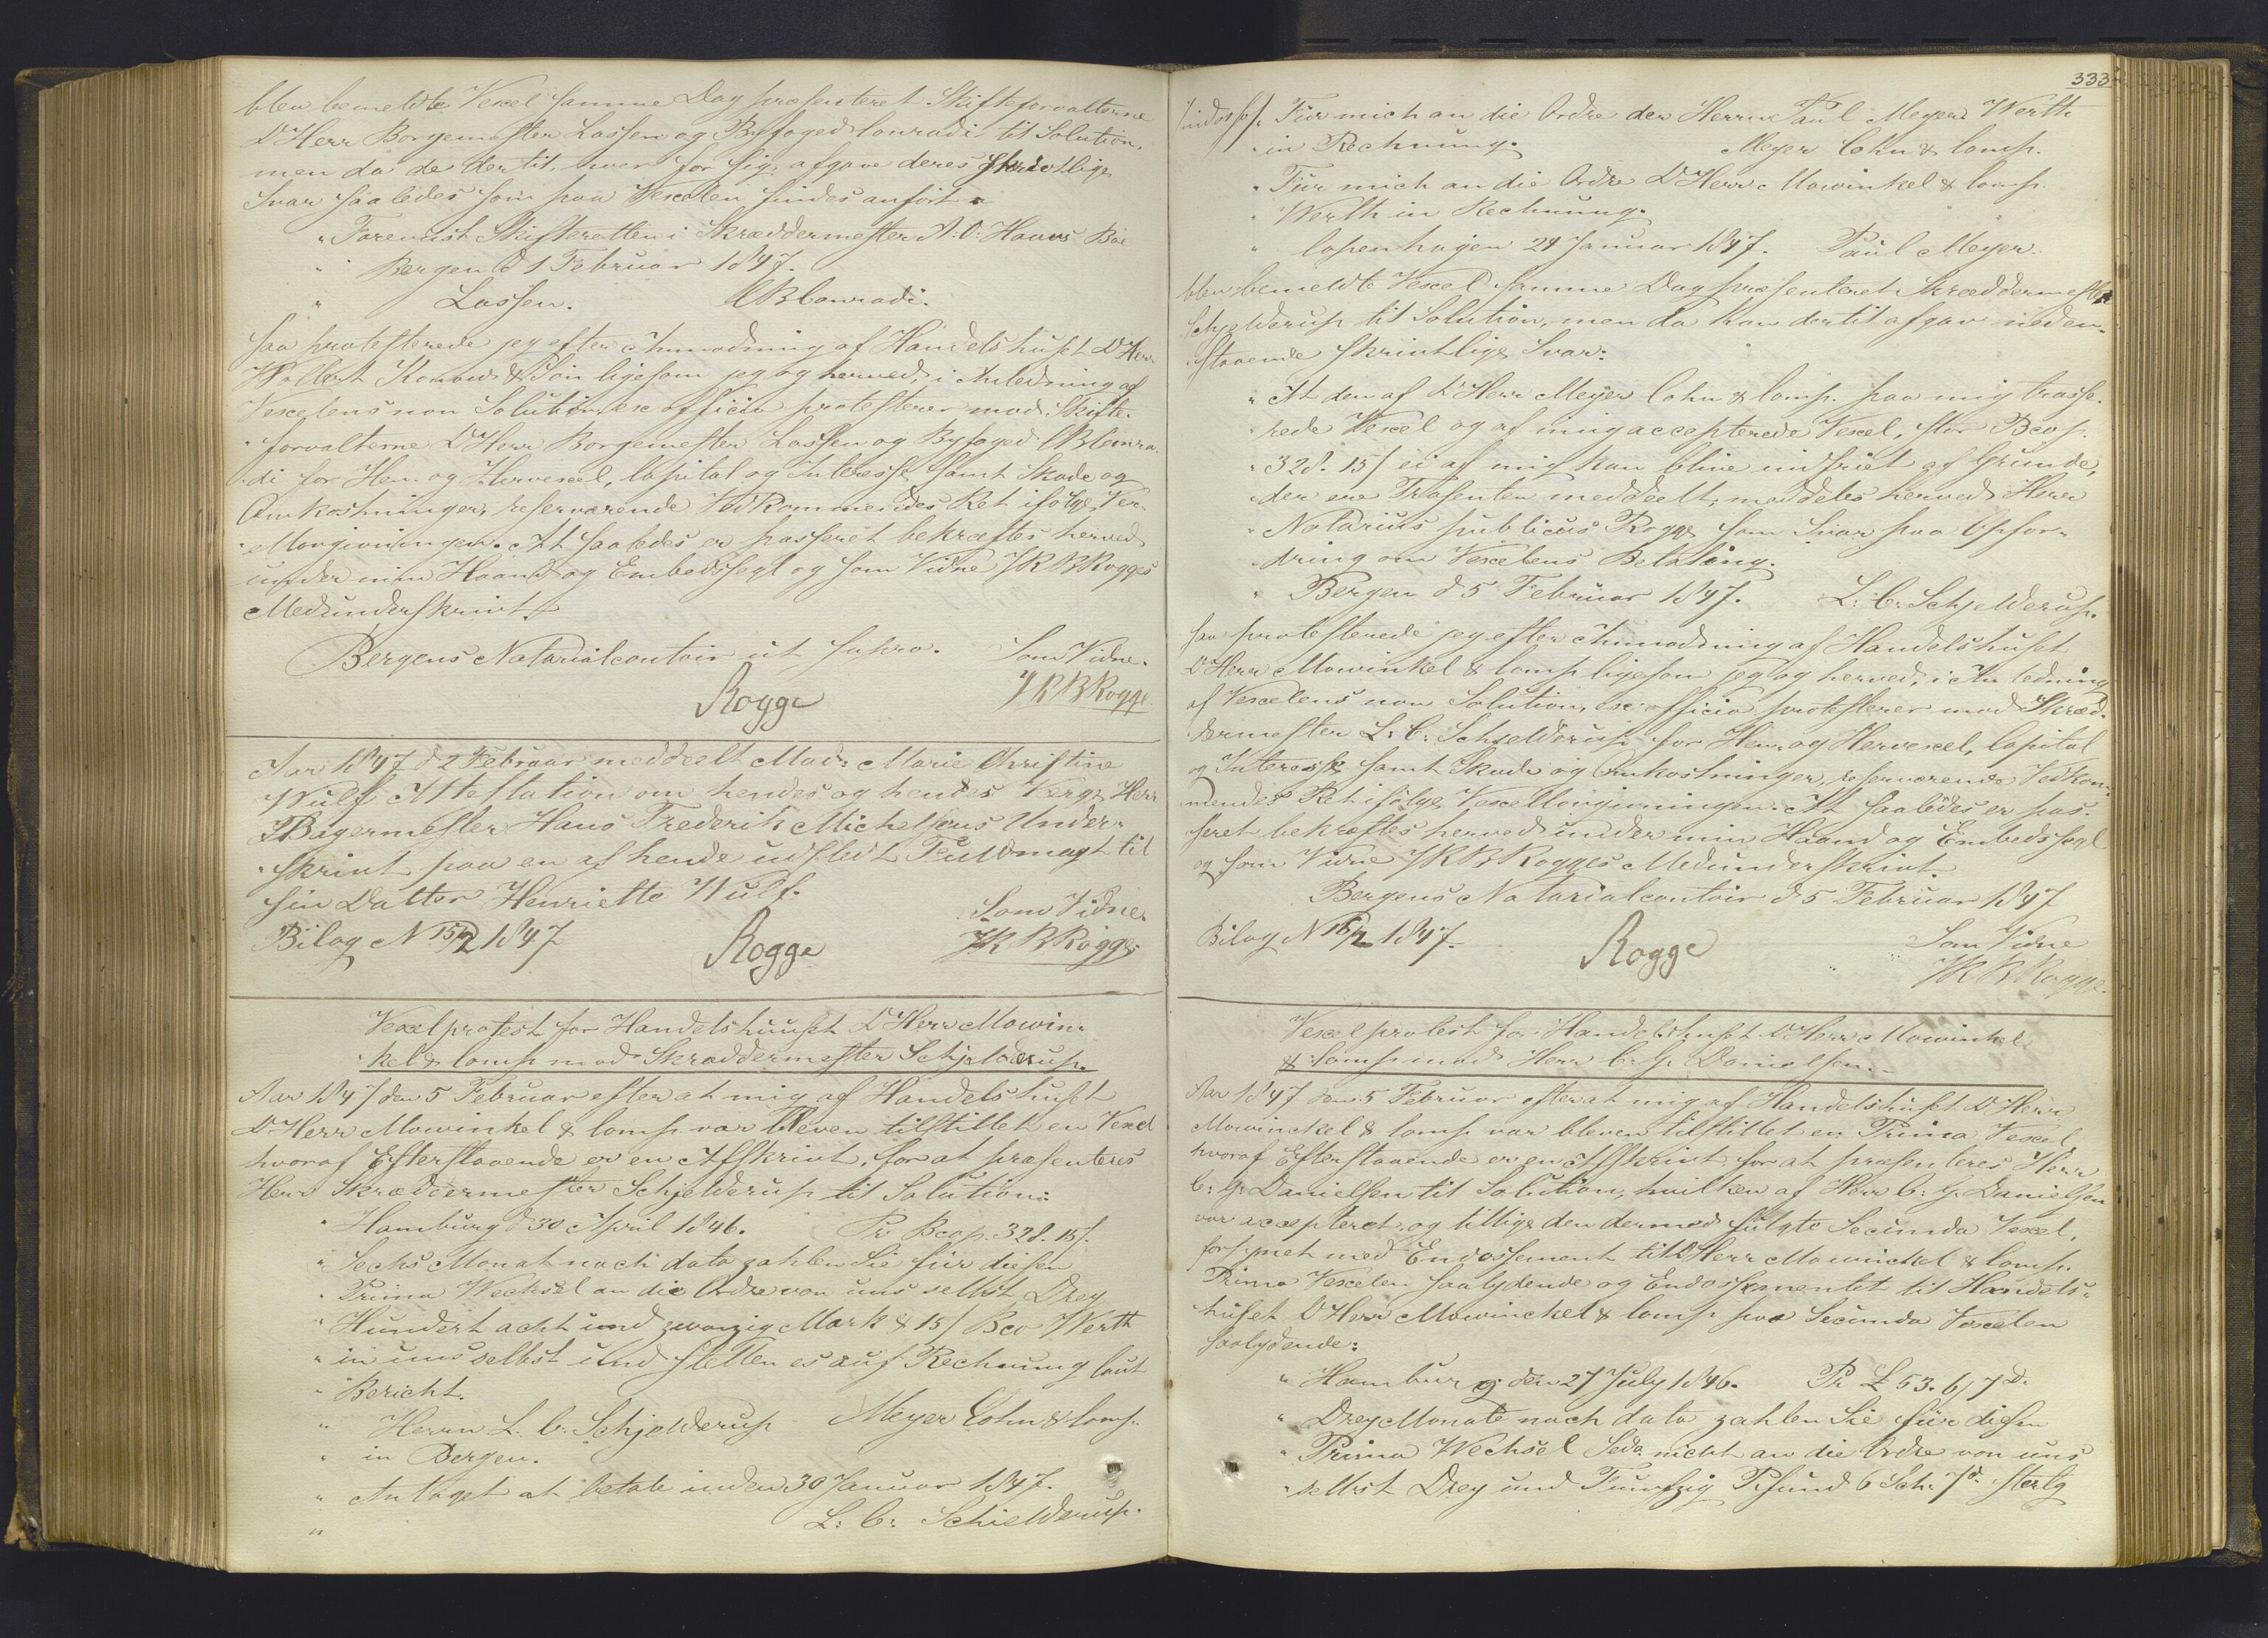 blev bemeldte Vexel samme Dag præsenteret Skifteforvalterne
D'Herr Borgemester Lassen og Byfoged Conradi til Solution,
men da de dertil, hver for sig, afgave deres skrivtlige
Svar saaledes som paa Vexelen findes anført
" Forevist Skifteretten i Skræddermester A: O: Haaes Boe
" Bergen d 1 Februar 1847.
" Lassen. CBConradi.
saa protesterede jeg efter Anmodning af Handelshuset D'Herr
Wollert Konow & Søn ligesom jeg og herved, i Anledning af
Vexelens non Solution, ex officio protesterer mod Skifte-
forvalterne D'Herr Borgemester Lassen og Byfoged CBConra-
di for Hen- og Hervexel, Capital og Interesse, samt Skade og
Omkostninger, reserverende Vedkommendes Ret ifølge Vex-
ellovgivningen. At saaledes er passeret bekræftes herved
under min Haand og Embedssegl og som Vidne JKBRogges
Medunderskrivt
Bergens Notarialcontoir ut supra. Som Vidne.
Rogge JKBRogge
Aar 1847 d 2 Februar meddeelt Mad: Marie Christine
Wulf Attestation om hendes og hendes Verge Herr
Bagermester Hans Frederik Michelsens Under-
skrivt paa en af hende udstedt Fuldmagt til
sin Datter Henriette Wulf.
Som Vidne.
Bilag N 15/2 1847 Rogge JKBRogge
Vexelprotest for Handelshuuset D'Herr Mowin-
kel & Comp mod Skræddermester Schjelderup.
Aar 1847 den 5 Februar efter at mig af Handelshuset
D'Herr Mowinkel & Comp var bleven tilstillet en Vexel
hvoraf Efterstaaende er en Afskrivt, for at præsenteres
Herr Skræddermester Schjelderup til Solution:
" Hamburg d 30 April 1846. Pr Bcop. 328. 15/.
" Sechs Monat nach dato zahlen Sie für diesen
" Prima Wechsel an die Ordre von uns selbst Drey
" Hundert acht und zwanzig Mark & 15/ Bco Werth
" in uns selbst und stellen es auf Rechnung laut
" Bericht.
" Herrn L. C. Schjelderup Meyer Cohn & Comp.
" in Bergen.
" Antaget at betale inden 30 Januar 1847.
" L: C: Schielderup.
333
Indoss/. Für mich an die Ordre der Herrn Paul Meyer Werth
" in Rechnung. Meyer Cohn & Comp.
" Für mich an die Ordre D'Herr Mowinkel & Comp
" Werth in Rechnung.
" Copenhagen 29 Januar 1847. Paul Meyer.
blev bemeldte Vexel samme Dag præsenteret Skræddermester
Schjelderup til Solution, men da han dertil afgav neden-
staaende skrivtlige Svar:
" At den af D'Herr Meyer Cohn & Comp. paa mig trasse-
" rede Vexel og af mig accepterede Vexel, stor Bcop.
" 328. 15/ ei af mig kan blive indfriet af Grunde,
" der ere Trasenten meddeelt, meddeles herved Herr
" Notarius publicus Rogge som Svar paa Opfor-
" dring om Vexelens Betaling.
" Bergen d 5 Februar 1847. L: C: Schjelderup.
saa protesterede jeg efter Anmodning af Handelshuset
D'Herr Mowinkel & Comp ligesom jeg og herved, i Anledning
af Vexelens non Solution, ex officio protesterer mod Skræd-
dermester L: C: Schjelderup for Hen- og Hervexel, Capital
og Interesse samt Skade og Omkostninger, reserverende Vedkom-
mendes Ret ifølge Vexellovgivningen. At saaledes er pas-
seret bekræftes herved under min Haand og Embedssegl
og som Vidne JKBRogges Medunderskrivt.
Bergens Notarialcontoir d 5 Februar 1847
Bilag N 16/2 1847. Rogge Som Vidne
JKBRogge.
Vexelprotest for Handelshuset D'Herr Mowinkel
& Comp mod Herr C. G. Danielsen.
Aar 1847 den 5 Februar efter at mig af Handelshuset D'Herr
Mowinckel & Comp var bleven tilstillet en Prima Vexel,
hvoraf Efterstaaende er en Afskrivt for at præsenteres Herr
C: G. Danielsen til Solution, hvilken af Herr C: G. Danielsen
var accepteret, og tillige den dermed fulgte Secunda Vexel,
forsynet med Endossement til D'Herr Mowinckel & Comp.
Prima Vexelen saalydende og Endossementet til Handels-
huset D'Herr Mowinckel & Comp paa Secunda Vexelen
saalydende:
" Hamburg den 27 July 1846. Pr £ 53. 6/ 7 d.
" Drey Monate nach dato zahlen Sie für diesen
" Prima Wechsel Seda. nicht an die Ordre von uns
" selbst Drey und Funfzig Pfund 6 Sch. 7d. sterlg